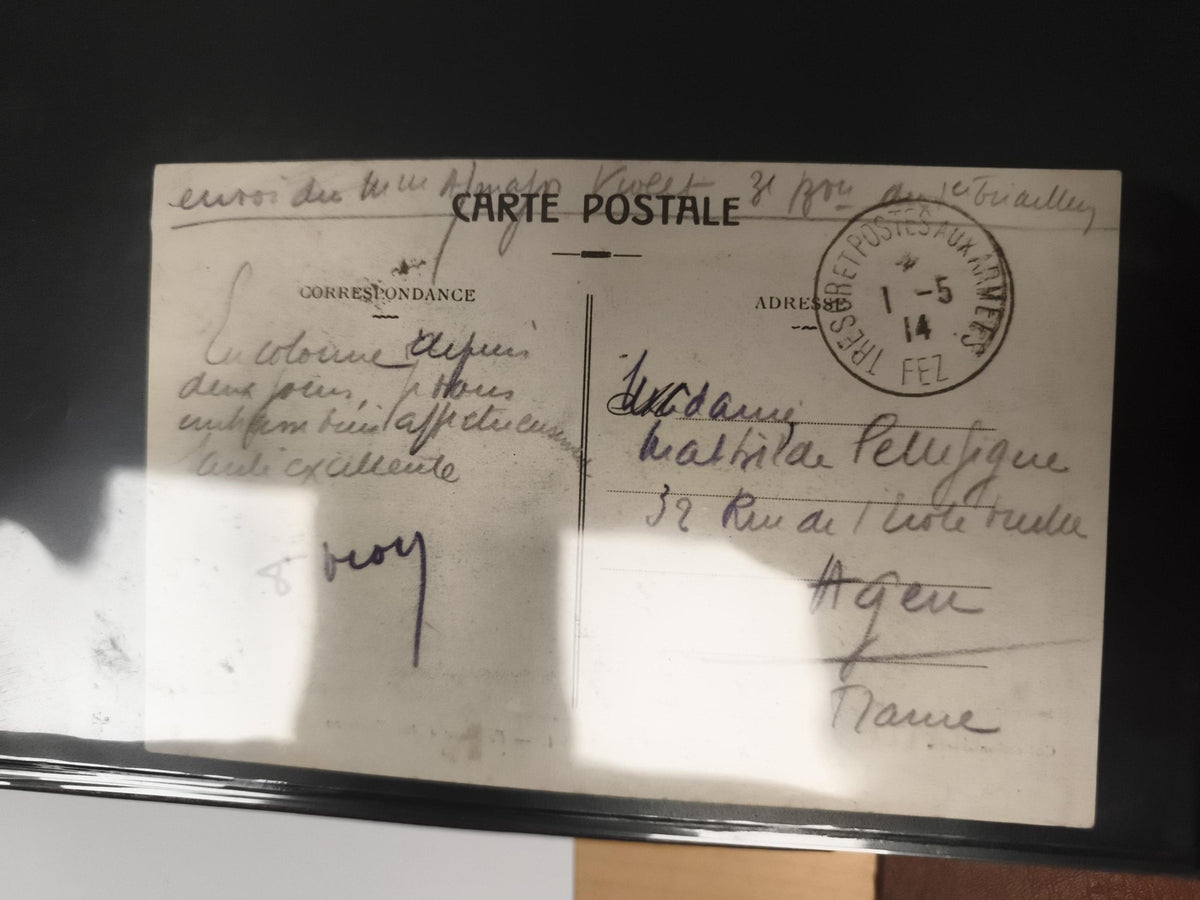 envoi du
CARTE POSTALE
TRESOR ET POSTES AUX ARMEES
1 -5
14
FEZ
CORRESPONDANCE
ADRESSE
En colonne depuis
deux jours, je vous
embrasse bien affectueusement
Santé excellente
Madame
Mathilde Pellefigue
32 Rue de l'école
Agen
France